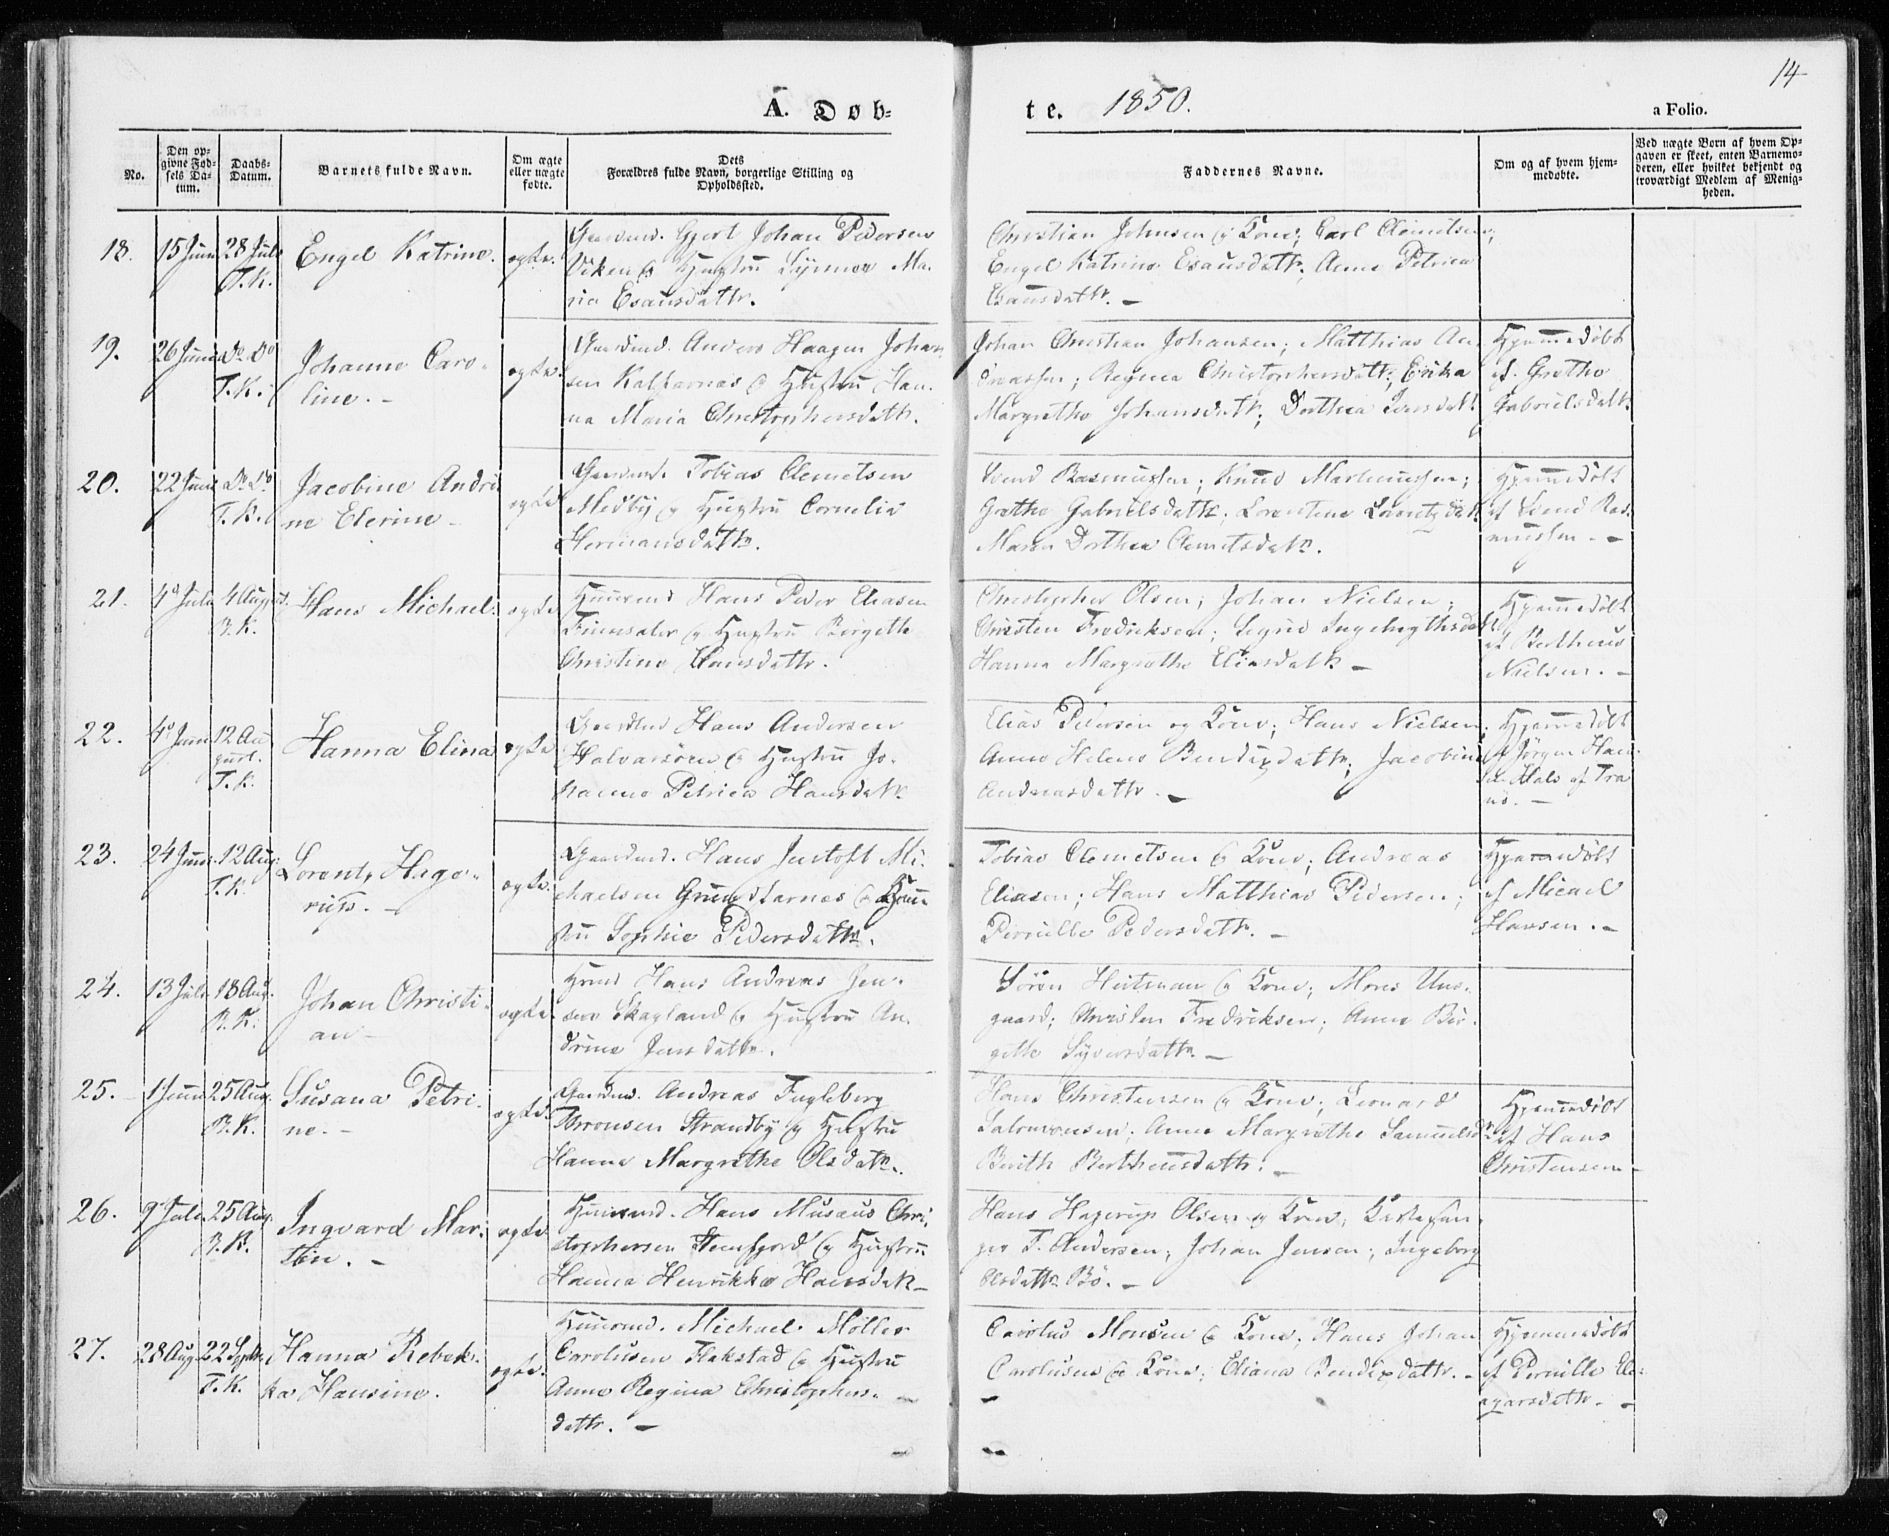 14
A. Døb-
te. 1850.
a Folio.
No.
Den op-
givne Fød-
sels Da-
tum.
Daabs-
Datum.
Barnets fulde Navn.
Om ægte
eller uægte
fødte.
Dets
Forældres fulde Navn, borgerlige Stilling og
Opholdssted.
Faddernes Navne.
Om og af hvem hjem-
medøbte.
Ved uægte Børn af hvem Op-
gaven er skeet, enten Barnemo-
deren, eller hvilket bekjendt og
troværdigt Medlem af Menig-
heden.
18. 15 Juni 28 Juli Engel Katrine. ægte. Gaardmd. Gjert Johan Pedersen
T.K. Viken & Hustru Synnov Ma-
ria Esausdattr.
Christian Johnsen & Kone; Carl Clemetsen;
Engel Katrine Esausdattr; Anne Petrica
Esausdattr. –
19. 26 Juni Do Do Johanne Caro- ægte. Gaardmd. Anders Haagen Johan-
T.K. line. – sen Kalfarnæs & Hustru Han-
na Maria Christophersdattr.
Johan Christian Johansen; Matthias An-
dreassen; Regina Christophersdattr; Erika
Margrethe Johansdattr; Dorthea Jensdattr
Hjemmedøbt
af Grethe
Gabrielsdattr
20. 22 Juni Do Do Jacobine Andri- ægte Gaardmd. Tobias Clemetsen
T.K. ne Elerine – Medby & Hustru Cornelia
Hermansdattr.
Svend Rasmussen; Knud Martinussen;
Grethe Gabrielsdattr; Lorentine Lorentzdatt
Maren Dorthea Clemetsdatr.
Hjemmedøbt
af Svend Ras-
mussen. –
21. 4d Juli 4 August. Hans Michael. ægte Huusmd Hans Peder Eliasen
B.K. Finnsæter & Hustru Birgitte
Christine Hansdattr.
Christopher Olsen; Johan Nielsen;
Christen Fredriksen; Sigrid Ingebrigtsdatt
Hanna Margrethe Eliasdattr –
Hjemmedøbt
af Bertheus
Nielsen. –
22. 4d Juni 12 Au- Hanna Elina ægte Gaardmd Hans Andersen
gust. Halvarsøen & Hustru Jo-
T.K. hanne Petrica Hansdattr
Elias Pedersen og Kone; Hans Nielsen;
Anne Helene Bendixdattr; Jacobine
Andreasdattr. –
Hjemmedøbt
af Jørgen Han-
sen Hals af Tra-
nø. –
23. 24 Juni 12 Aug. Lorents Hage- ægte. Gaardmd. Hans Justoft Mi-
T.K. rup. – chaelsen Grundfarnæs & Hu-
stru Sophie Pedersdattr.
Tobias Clemetsen & Kone; Andreas
Eliasen; Hans Matthias Pedersen;
Pernille Pedersdattr. –
Hjemmedøbt
af Micael
Hansen. –
24. 13 Juli 18 Aug. Johan Christi- ægte. Huusmd Hans Andreas Jen-
B.K. an – sen Skagland & Hustru An-
drine Jensdattr.
Søren Heitman & Kone; Mons Uns-
gaard; Christen Fredriksen; Anne Bir-
gitte Syversdattr –
25. 1 Juni 25 Aug. Susana Petri- ægte Gaardmd. Andreas Fugleberg
B.K. ne. – Aronsen Strandby & Hustru
Hanna Margrethe Olsdattr.
Hans Christensen & Kone; Leonard
Salomonsen; Anne Margrethe Samuelsd
Berith Bertheusdattr. –
Hjemmedøbt
af Hans
Christensen –
26. 9 Juli 25 Aug. Ingvard Mar- ægte Huusmd. Hans Musæus Chri-
B.K. tin. – stophersen Steinfjord & Hustru
Hanna Henrikka Hansdatr –
Hans Hagerup Olsen og Kone; Kirkesan-
ger T. Andersen; Johan Jensen; Ingeborg
Olsdattr Bø. –
27. 28 Aug. 22 Septbr Hanna Rebek- ægte. Huusmd. Michael Møller
T.K. ka Hansine. Carolusen Flakstad & Hustru
Anne Regina Christophers-
dattr. –
Carolus Monsen & Kone; Hans Johan
Carolusen & Kone; Eliana Bendixdattr. –
Hjemmedøbt
af Pernille Ele-
azarsdattr. –